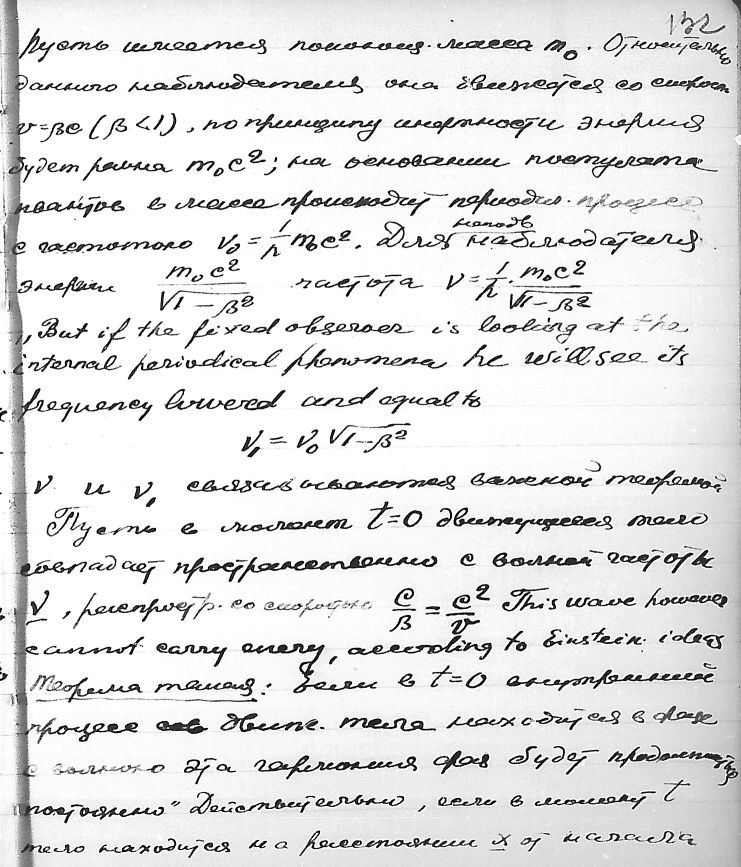 132
Пусть имеется покоющ. масса m₀. Относительно
данного наблюдателя она движется со скорост.
v=βc (β<1), по принципу инертности энергия
будет равна m₀c²; на основании постулата
квантов в массе происходит периодич. процесс
с частотою ν₀ = 1/h m₀c². Для неподв наблюдателя
энергии m₀c²/√1-β² частота ν = 1/h · m₀c²/√1-β²
„But if the fixed observer is looking at the
internal periodical phenomena he will see its
frequency lowered and equal to
ν₁ = ν₀ √1-β²
ν и ν₁ связываются важной теоремой
Пусть в момент t=0 движущееся тело
совпадает пространственно с волной частоты
ν, распростр. со скоростью c/β = c²/v This wave however
cannot carry energy, according to Einstein. ideas
Теорема такая: Если в t=0 внутренний
процесс движ. тела находится в фазе
с волною эта гармония фаз будет продолжаться
постоянно" Действительно, если в момент t
тело находится на расстоянии x от начала